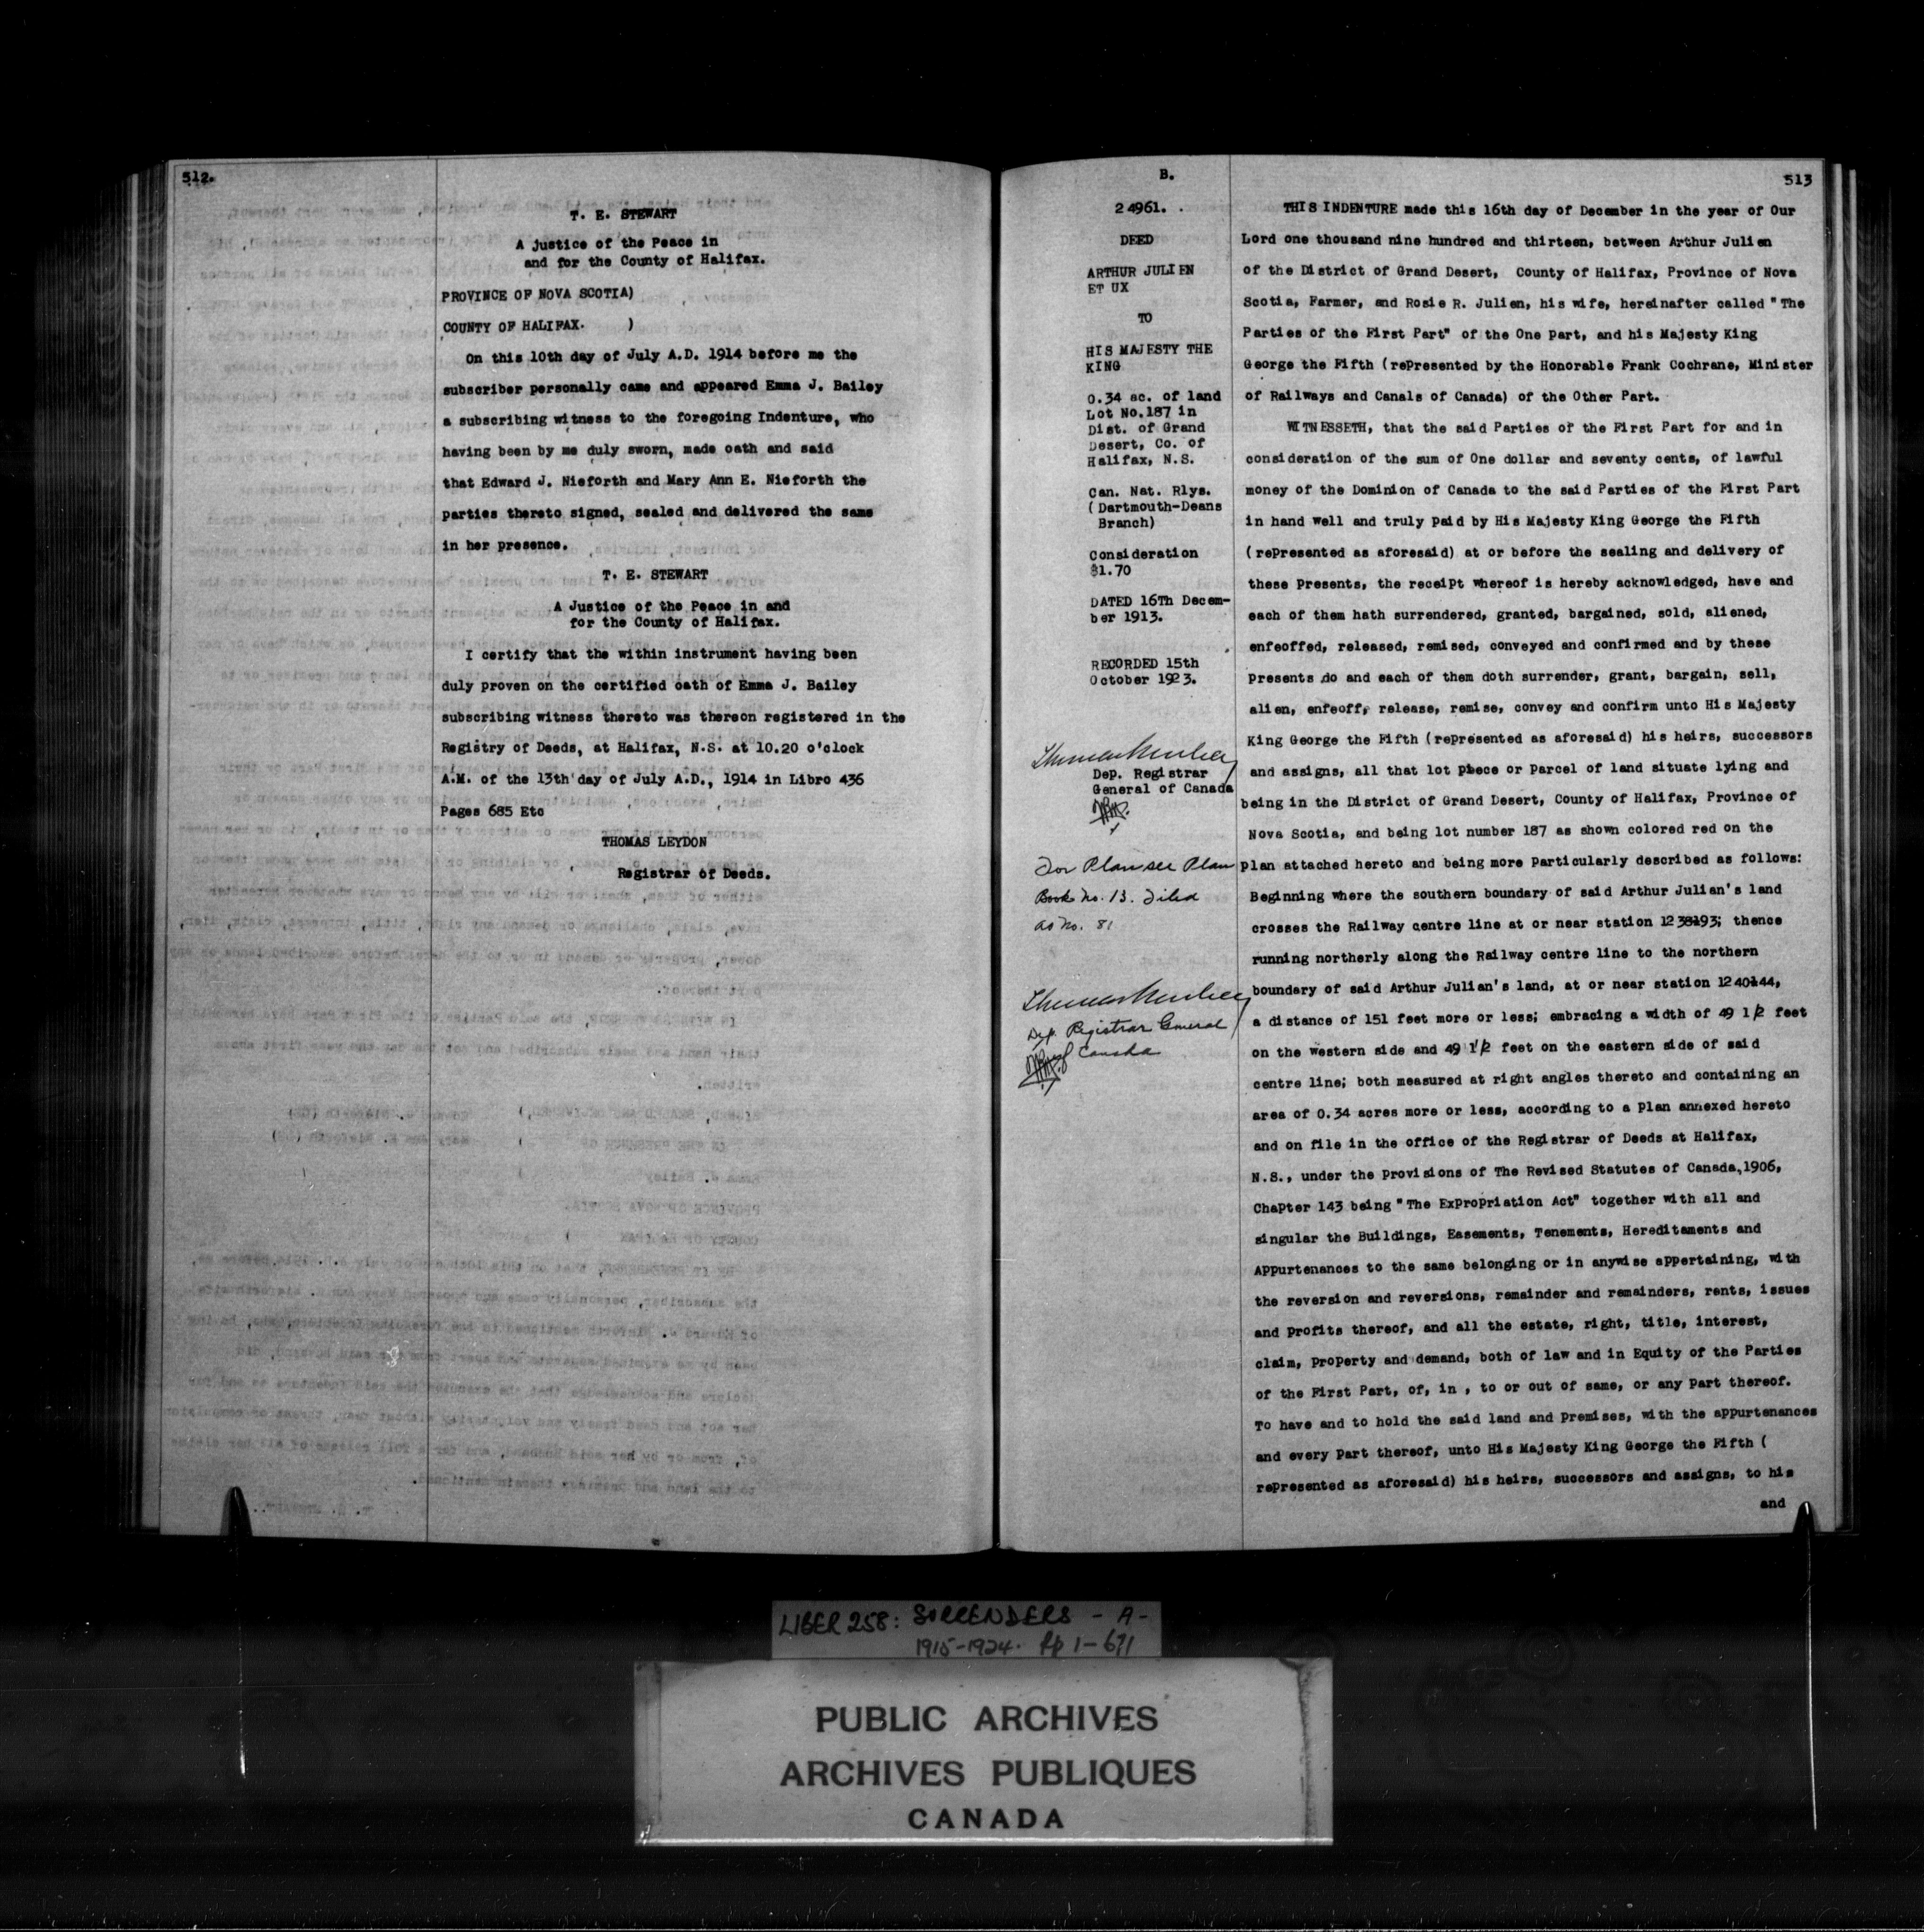 512.
T. E. STEWART
A justice of the Peace in
and for the County of Halifax.
PROVINCE OF NOVA SCOTIA)
COUNTY OF HALIFAX. )
On this 10th day of July A.D. 1914 before me the
subscriber personally came and appeared Emma J. Bailey
a subscribing witness to the foregoing Indenture, who
having been by me duly sworn, made oath and said
that Edward J. Nieforth and Mary Ann E. Nieforth the
parties thereto signed, sealed and delivered the same
in her presence.
T. E. STEWART
A Justice of the Peace in and
for the County of Halifax.
I certify that the within instrument having been
duly proven on the certified oath of Emma J. Bailey
subscribing witness thereto was thereon registered in the
Registry of Deeds, at Halifax, N.S. at 10.20 o'clock
A.M. of the 13th day of July A.D., 1914 in Libro 436
Pages 685 Etc
THOMAS LEYDON
Registrar of Deeds.
B.
513
24961.
DEED
ARTHUR JULIEN
ET UX
TO
HIS MAJESTY THE
KING
0.34 ac. of land
Lot No.187 in
Dist. of Grand
Desert, Co. of
Halifax, N.S.
Can. Nat. Rlys.
(Dartmouth-Deans
Branch)
Consideration
$1.70
DATED 16Th Decem-
ber 1913.
RECORDED 15th
October 1923.
Dep. Registrar
General of Canada
For Plan see Plan
Book No. 13. Filed
as No. 81
Dep. Registrar General
of Canada
THIS INDENTURE made this 16th day of December in the year of Our
Lord one thousand nine hundred and thirteen, between Arthur Julien
of the District of Grand Desert, County of Halifax, Province of Nova
Scotia, Farmer, and Rosie R. Julien, his wife, hereinafter called "The
Parties of the First Part" of the One part, and his Majesty King
George the Fifth (represented by the Honorable Frank Cochrane, Minister
of Railways and Canals of Canada) of the Other Part.
WITNESSETH, that the said Parties of the First Part for and in
consideration of the sum of One dollar and seventy cents, of lawful
money of the Dominion of Canada to the said Parties of the First Part
in hand well and truly paid by His Majesty King George the Fifth
(represented as aforesaid) at or before the sealing and delivery of
these presents, the receipt whereof is hereby acknowledged, have and
each of them hath surrendered, granted, bargained, sold, aliened,
enfeoffed, released, remised, conveyed and confirmed and by these
presents do and each of them doth surrender, grant, bargain, sell,
alien, enfeoff, release, remise, convey and confirm unto His Majesty
King George the Fifth (represented as aforesaid) his heirs, successors
and assigns, all that lot piece or parcel of land situate lying and
being in the District of Grand Desert, County of Halifax, Province of
Nova Scotia, and being lot number 187 as shown colored red on the
plan attached hereto and being more particularly described as follows:
Beginning where the southern boundary of said Arthur Julian's land
crosses the Railway centre line at or near station 1238+93; thence
running northerly along the Railway centre line to the northern
boundary of said Arthur Julian's land, at or near station 1240+44,
a distance of 151 feet more or less; embracing a width of 49 1/2 feet
on the western side and 49 1/2 feet on the eastern side of said
centre line; both measured at right angles thereto and containing an
area of 0.34 acres more or less, according to a plan annexed hereto
and on file in the office of the Registrar of Deeds at Halifax,
N.S., under the provisions of The Revised Statutes of Canada,1906,
Chapter 143 being "The Expropriation Act" together with all and
singular the Buildings, Easements, Tenements, Hereditaments and
Appurtenances to the same belonging or in anywise appertaining, with
the reversion and reversions, remainder and remainders, rents, issues
and profits thereof, and all the estate, right, title, interest,
claim, property and demand, both of law and in Equity of the Parties
of the First Part, of, in , to or out of same, or any part thereof.
To have and to hold the said land and premises, with the appurtenances
and every part thereof, unto His Majesty King George the Fifth (
represented as aforesaid) his heirs, successors and assigns, to his
and
LIBER 258: SURRENDERS - A -
1915-1924. pp 1-671
PUBLIC ARCHIVES
ARCHIVES PUBLIQUES
CANADA